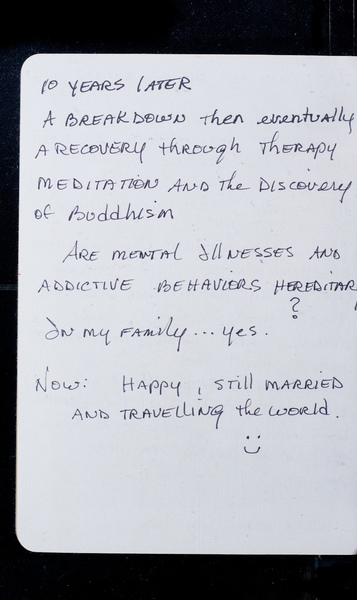 10 YEARS LATER
A BREAKDOWN then eventually
A RECOVERY through THERAPY
MEDITATION AND the DISCOVERY
of Buddhism
ARE MENTAL ILLNESSES AND
ADDICTIVE BEHAVIORS HEREDITAR
?
In my FAMILY... yes.
NOW: HAPPY, STILL MARRIED
AND TRAVELLING the WORLD.
:)